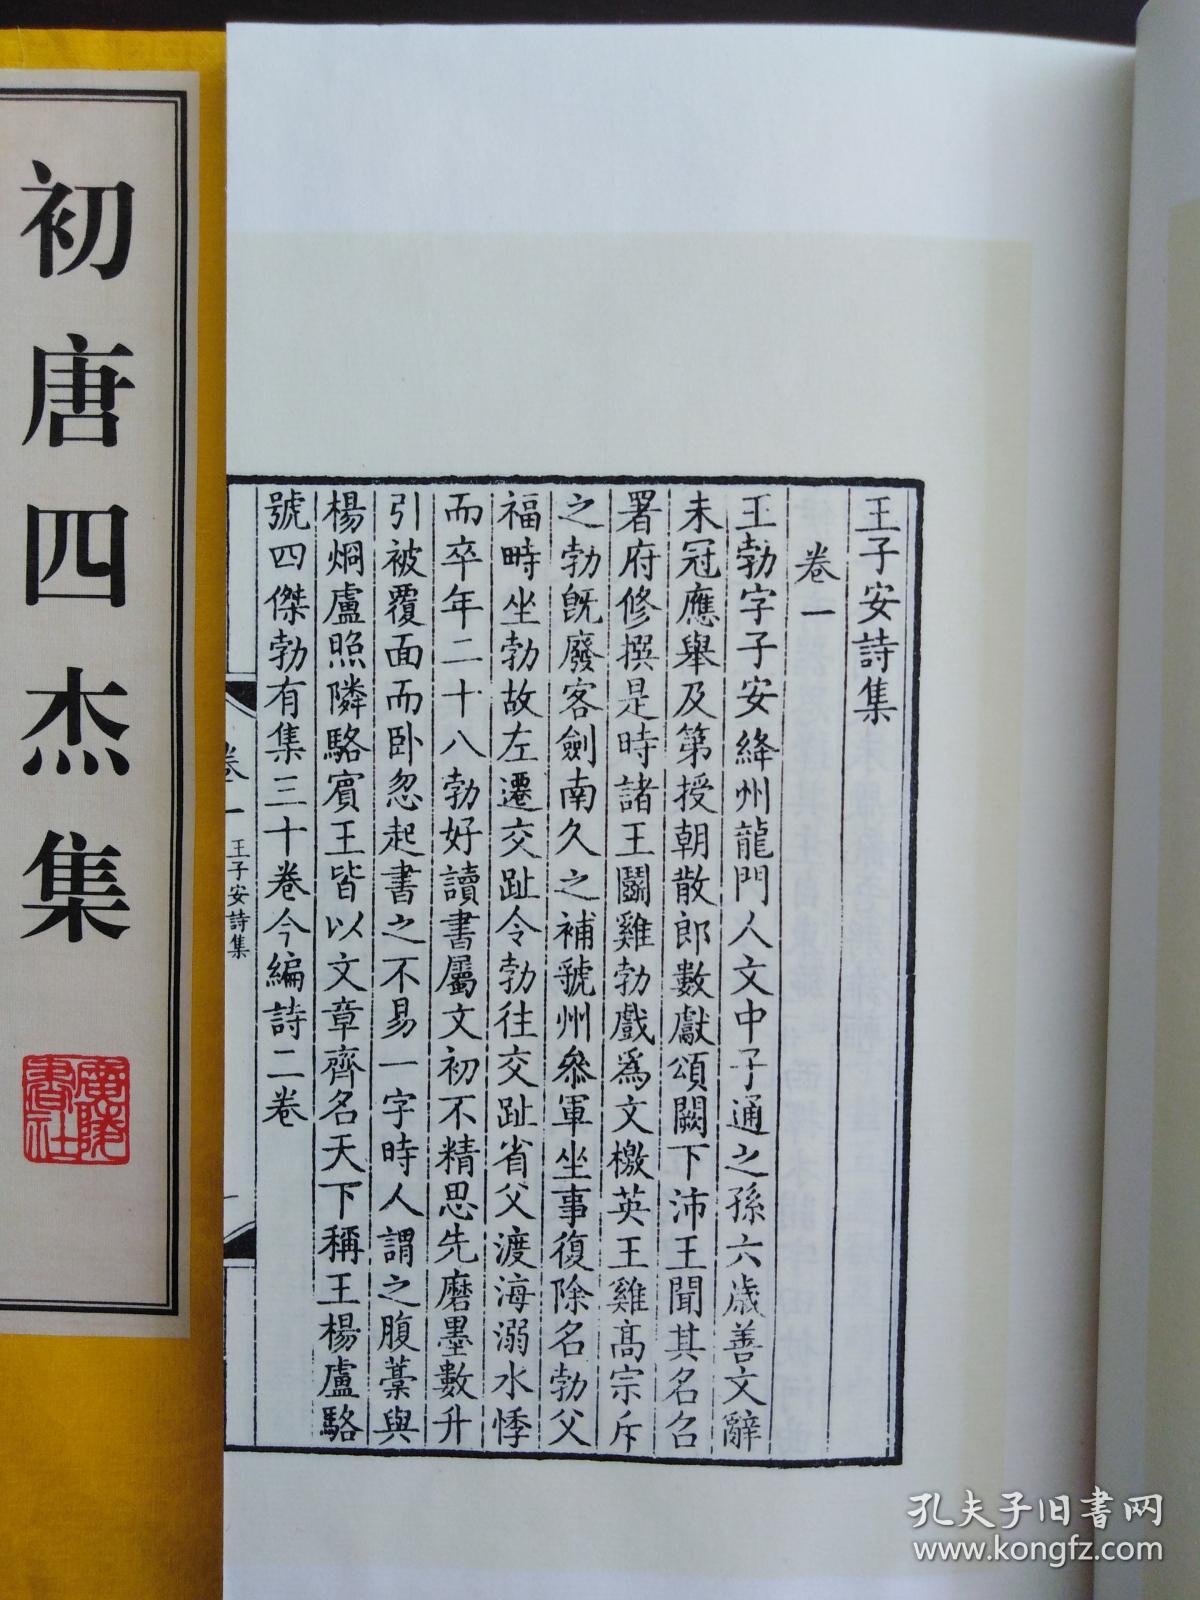 初唐四杰集
廣陵書社
王子安詩集
卷一
王勃字子安絳州龍門人文中子通之孫六歲善文辭
未冠應舉及第授朝散郎數獻頌闕下沛王聞其名召
署府修撰是時諸王鬭雞勃戲爲文檄英王雞高宗斥
之勃旣廢客劍南久之補虢州叅軍坐事復除名勃父
福畤坐勃故左遷交趾令勃往交趾省父渡海溺水悸
而卒年二十八勃好讀書屬文初不精思先磨墨數升
引被覆面而卧忽起書之不易一字時人謂之腹藁與
楊烱盧照隣駱賓王皆以文章齊名天下稱王楊盧駱
號四傑勃有集三十卷今編詩二卷
卷一 王子安詩集
孔夫子旧书网
www.kongfz.com